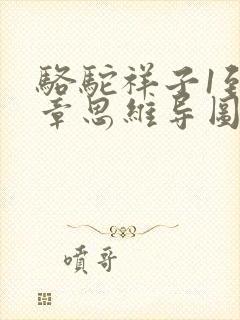 骆驼祥子1至
章思维导图
喷哥